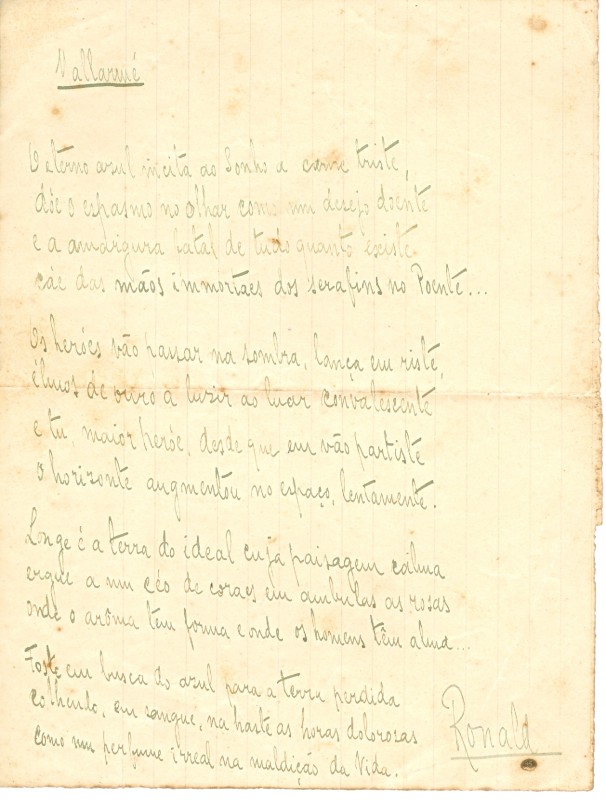 Mallarmé
O eterno azul incita ao Sonho a carne triste,
dóe o espasmo no olhar como um desejo doente
e a amargura fatal de tudo quanto existe
cáe das mãos immortaes dos serafins no Poente...
Os heróes vão passar na sombra, lança em riste,
élmos de ouro a luzir ao luar convalescente
e tu, maior heróe, desde que em vão partiste
o horizonte augmentou no espaço, lentamente.
Longe é a terra do ideal cuja paisagem cálma
ergue a um céo de coraes em ambulas as rosas
onde o arôma tem forma e onde os homens têm alma...
Foste em busca do azul para a terra perdida
colhendo, em sangue, na haste as horas dolorosas
como um perfume irreal na maldição da Vida.
Ronald